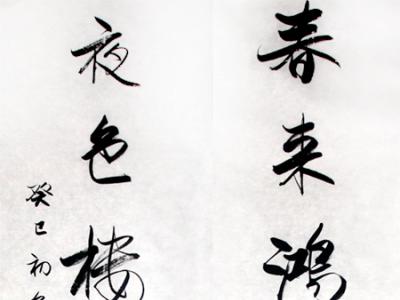 春来鸿
夜色楼
癸巳初